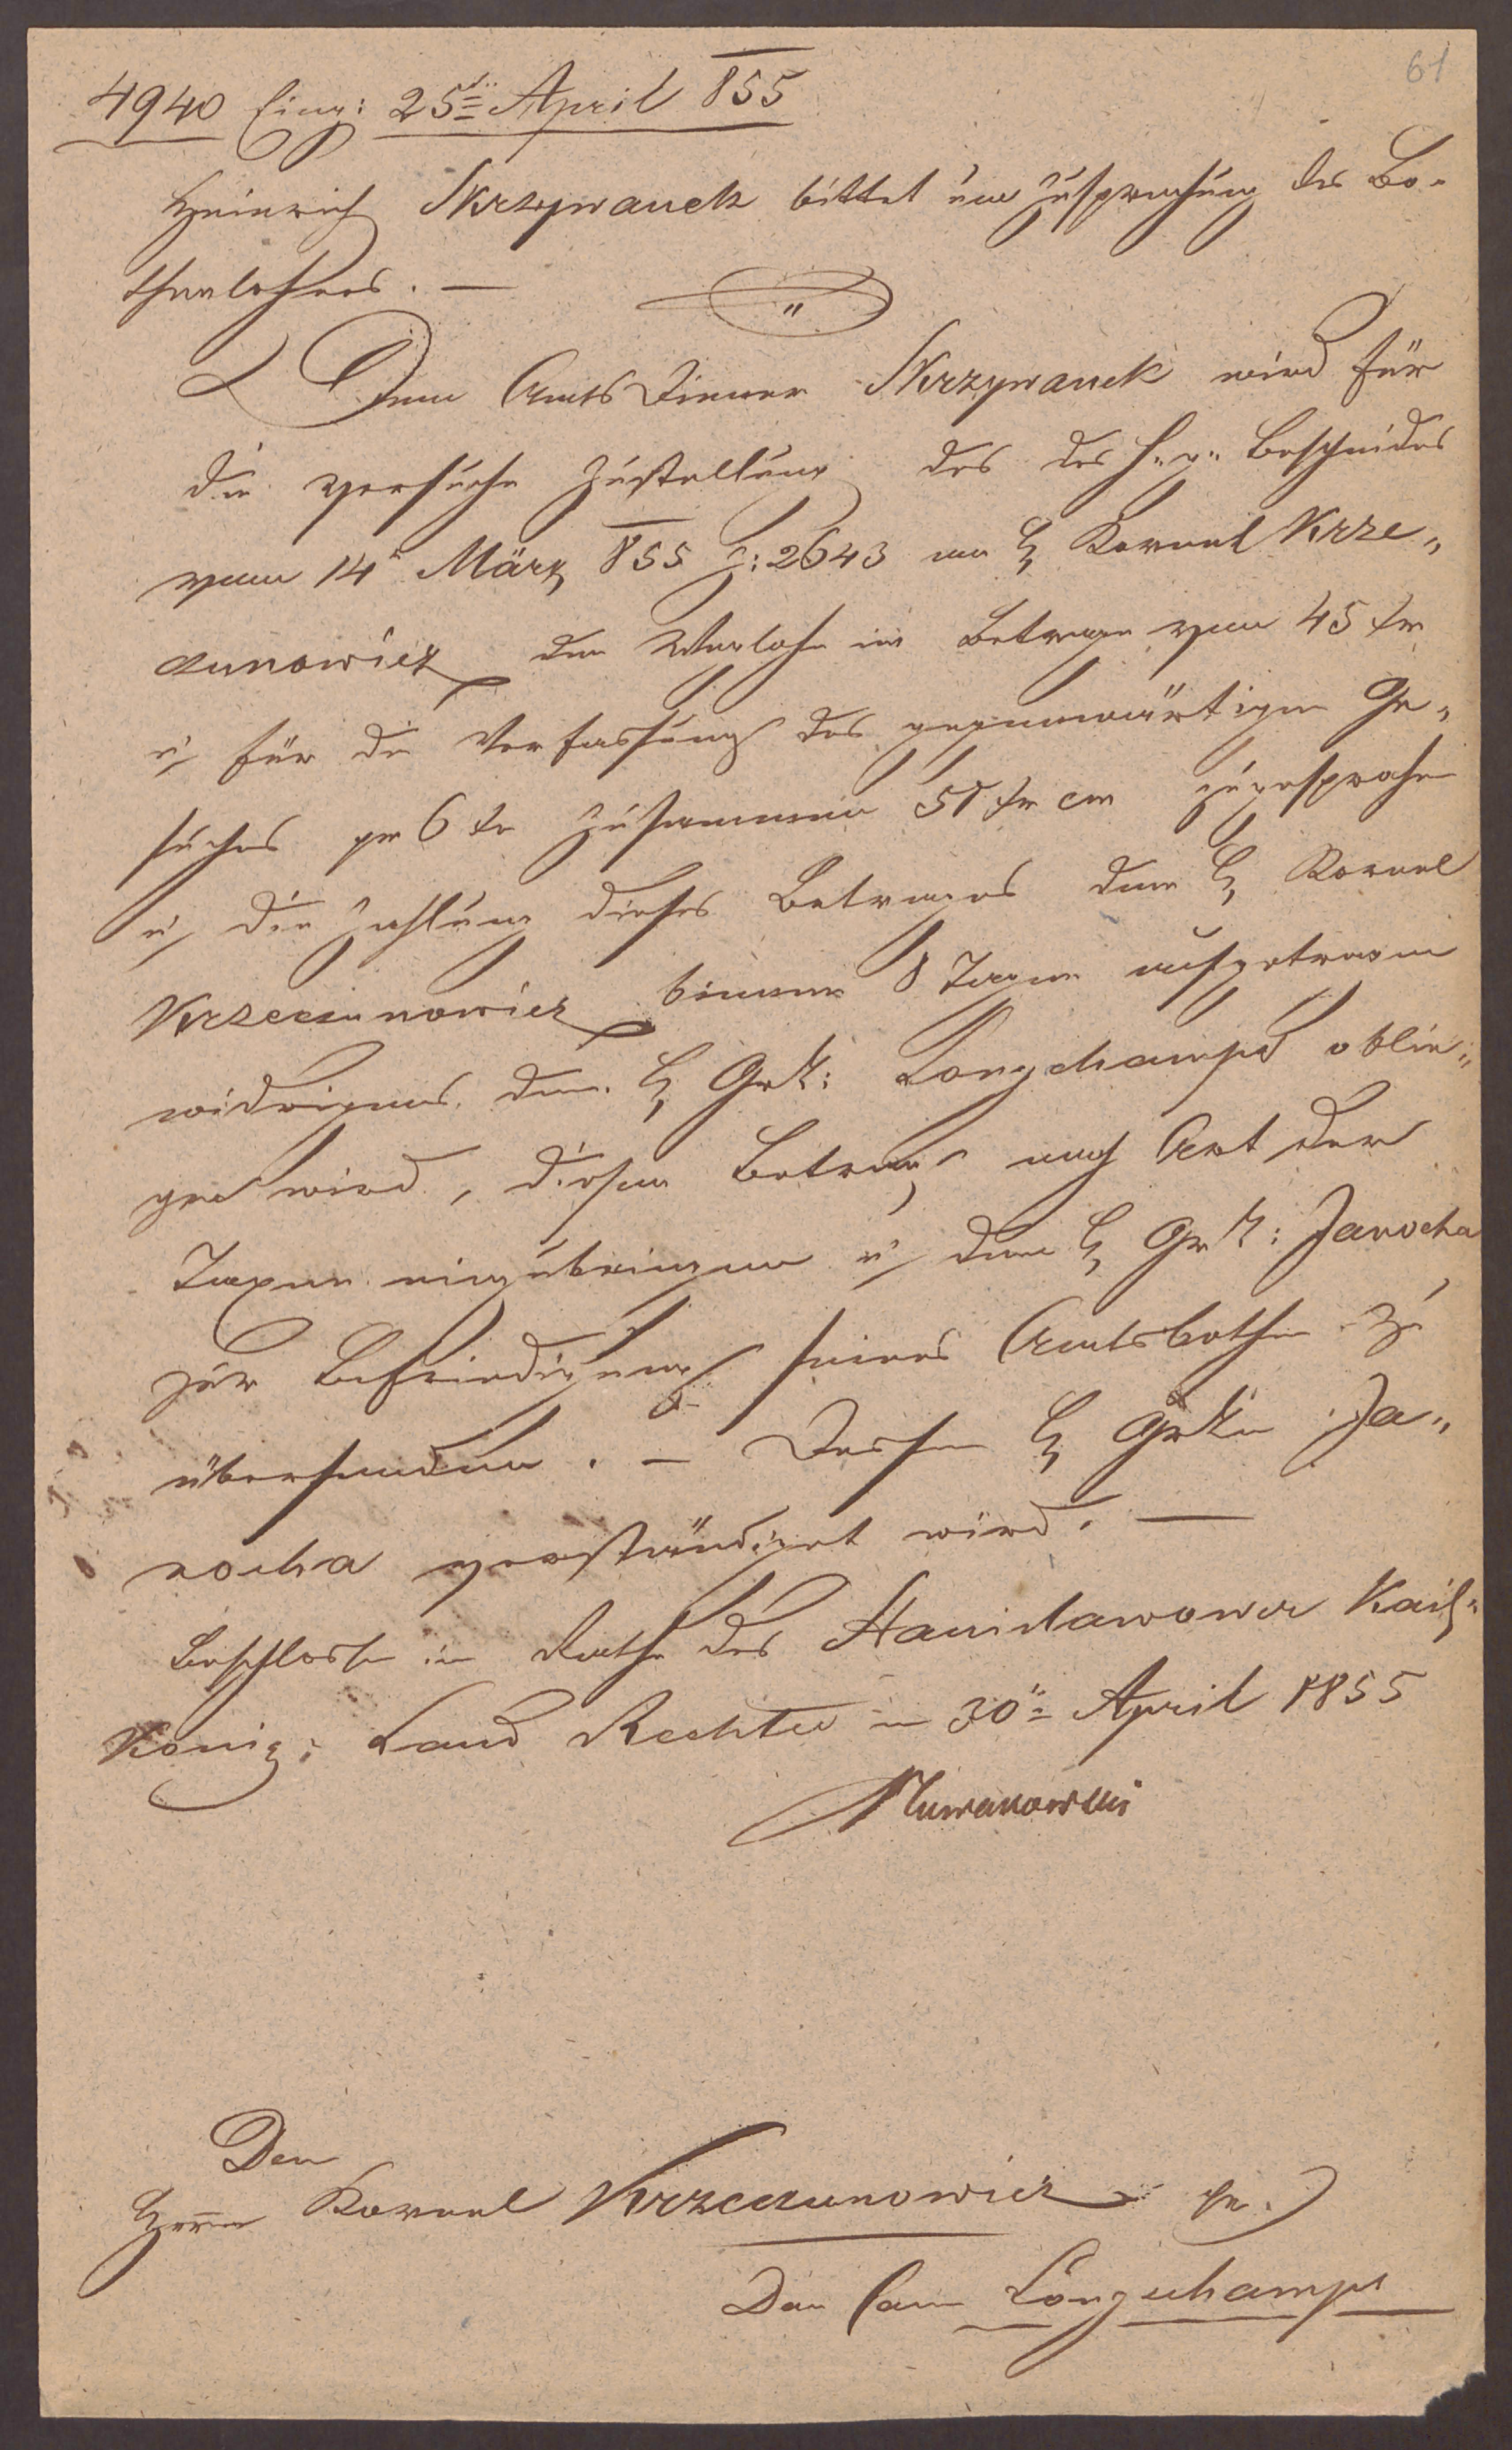 61
4940 Eing: 25ten April 855
Heinrich Skrzywanek bittet um Zusprechung des Bo-
thenlohnes. —
Dem Amts Diener Skrzywanek wird für
die versuchte Zustellung des des h. g. Bescheides
vom 14 März 855 Z: 2643 an H Kornel Krze„
czunowicz der Weglohn im Betrage von 45 xr
u für die Verfassung des gegenwärtigen Ge„
suches pr 6 xr zusammen 51 xr cm zugesprochen
u die Zahlung dieses Betrages dem H Kornel
Krzeczunowicz binnen 8 Tagen aufgetragen
widrigens dem H Longchamps oblie„
gen wird, diesen Betrag nach Art der
Taxen einzubringen u dem H Janocha
zur Befriedigung seines Amtsbothen zu
übersenden. — Dessen H Ja„
nocha verständiget wird. —
Beschlossen im Rathe des Stanislawower Kais„
König: Land Rechtes am 30ten April 1855
Den
Herrn Kornel Krzeczunowicz
Longchamps